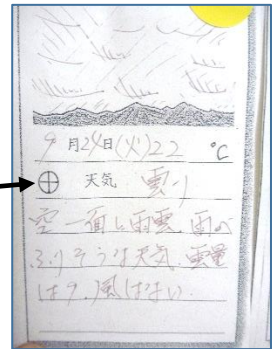 9月24日(火)22℃
天気 雲り
空一面に雨雲。雨の
ふりそうな天気。雲量
は9。風はない。